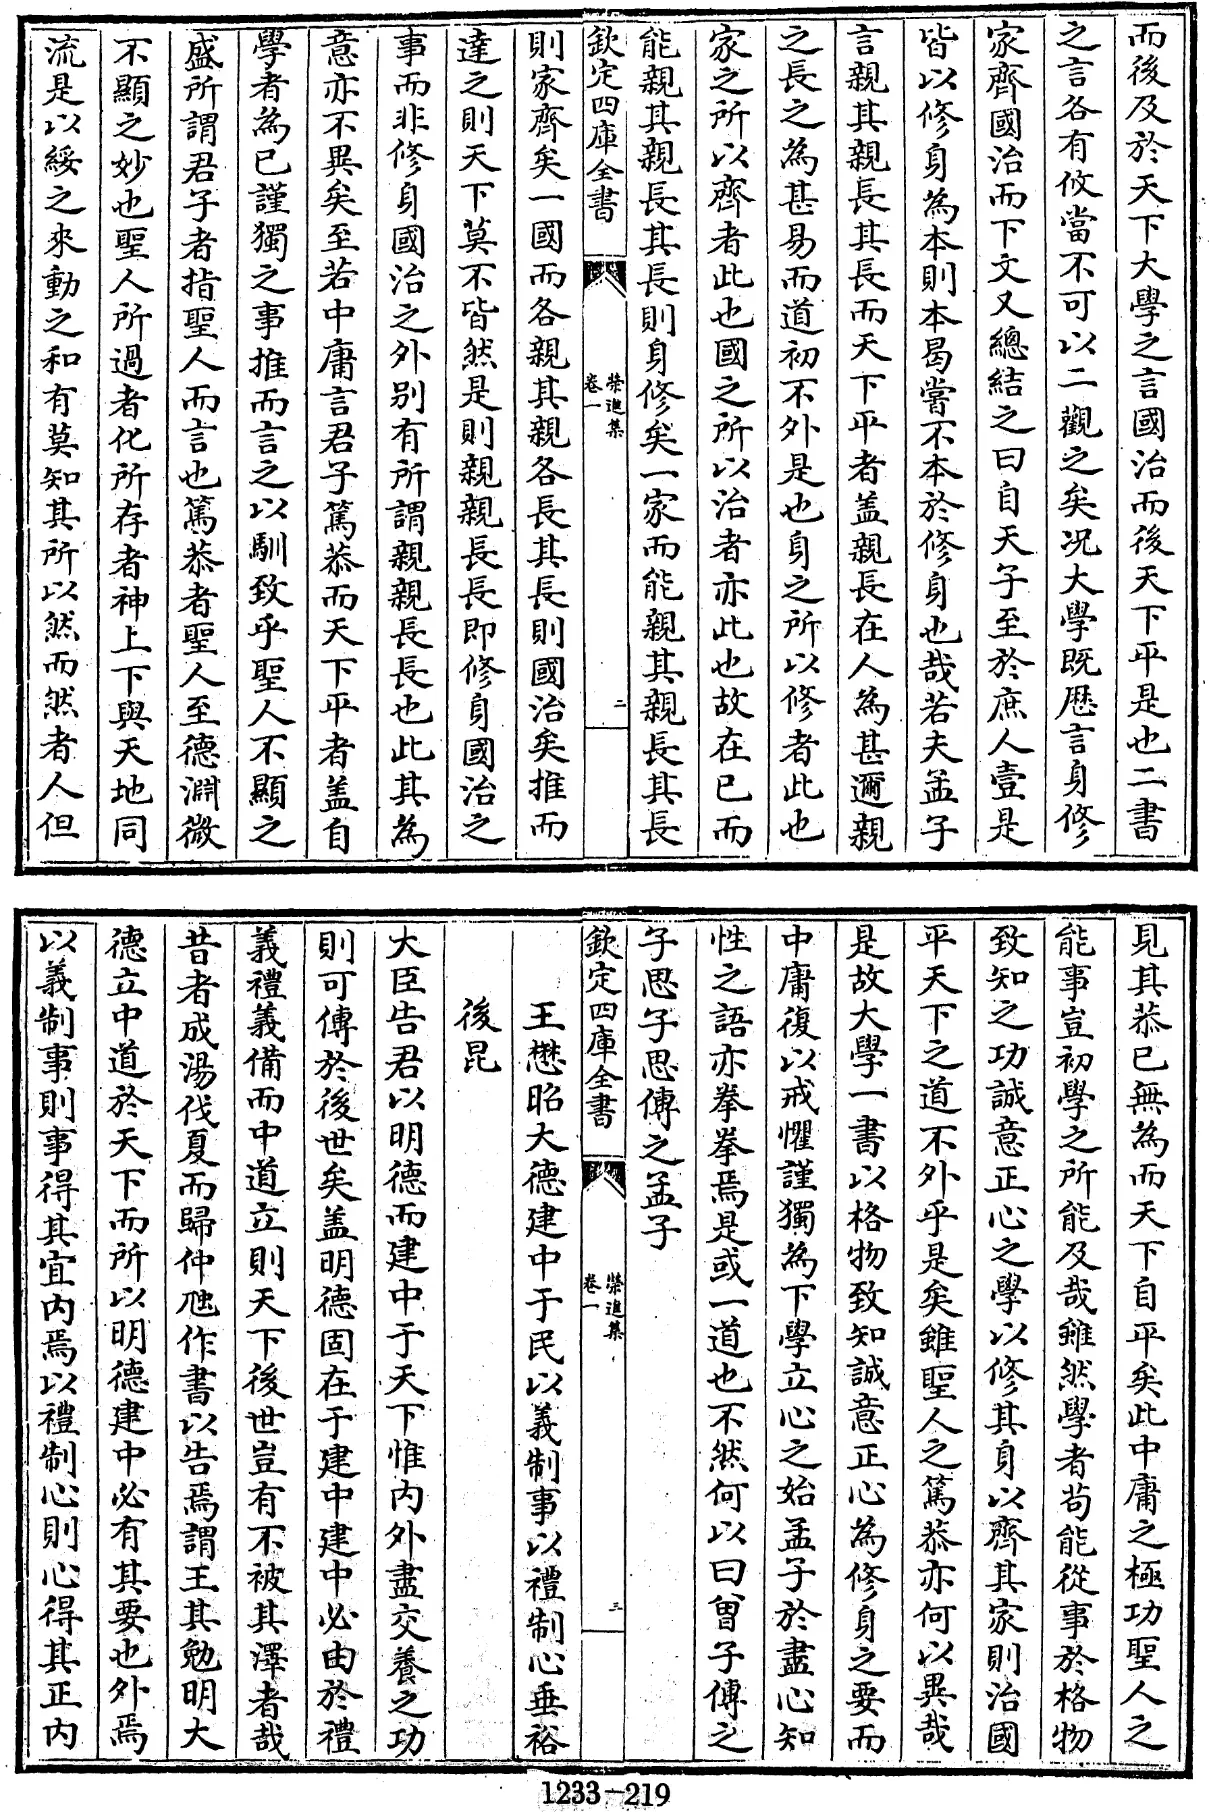 而後及於天下大學之言國治而後天下平是也二書
之言各有攸當不可以二觀之矣况大學既歴言身修
家齊國治而下文又總結之曰自天子至於庶人壹是
皆以修身為本則本曷嘗不本於修身也哉若夫孟子
言親其親長其長而天下平者盖親長在人為甚邇親
之長之為甚易而道初不外是也身之所以修者此也
家之所以齊者此也國之所以治者亦此也故在已而
能親其親長其長則身修矣一家而能親其親長其長
欽定四庫全書
榮進集
卷一
二
則家齊矣一國而各親其親各長其長則國治矣推而
達之則天下莫不皆然是則親親長長即修身國治之
事而非修身國治之外别有所謂親親長長也此其為
意亦不異矣至若中庸言君子篤恭而天下平者盖自
學者為已謹獨之事推而言之以馴致乎聖人不顯之
盛所謂君子者指聖人而言也篤恭者聖人至德淵微
不顯之妙也聖人所過者化所存者神上下與天地同
流是以綏之來動之和有莫知其所以然而然者人但
見其恭已無為而天下自平矣此中庸之極功聖人之
能事豈初學之所能及哉雖然學者茍能從事於格物
致知之功誠意正心之學以修其身以齊其家則治國
平天下之道不外乎是矣雖聖人之篤恭亦何以異哉
是故大學一書以格物致知誠意正心為修身之要而
中庸復以戒懼謹獨為下學立心之始孟子於盡心知
性之語亦拳拳焉是或一道也不然何以曰曾子傳之
子思子思傳之孟子
欽定四庫全書
榮進集
卷一
三
王懋昭大德建中于民以義制事以禮制心垂裕
後昆
大臣告君以明德而建中于天下惟内外盡交養之功
則可傳於後世矣盖明德固在于建中建中必由於禮
義禮義備而中道立則天下後世豈有不被其澤者哉
昔者成湯伐夏而歸仲虺作書以告焉謂王其勉明大
德立中道於天下而所以明德建中必有其要也外焉
以義制事則事得其宜内焉以禮制心則心得其正内
1233-219